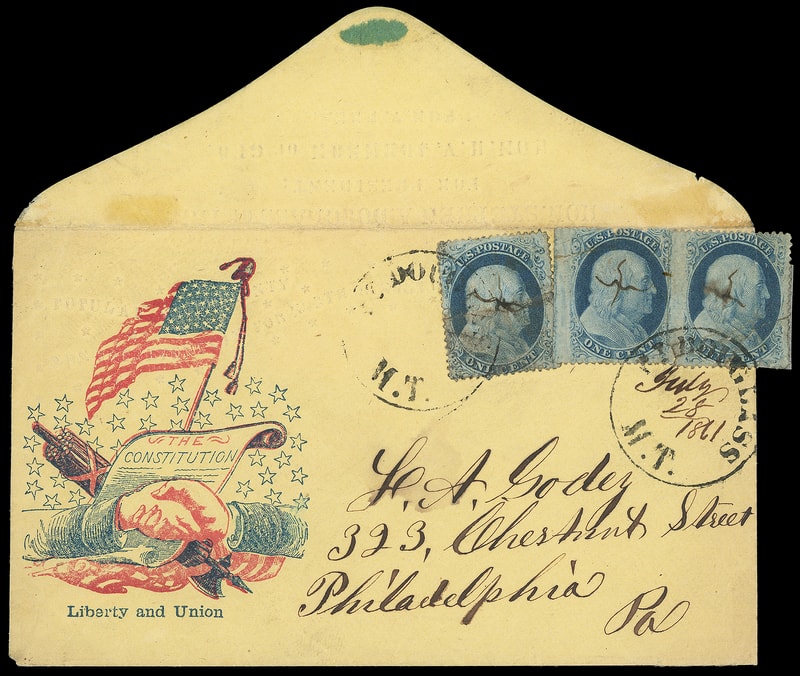 U.S.POSTAGE
ONE CENT
U.S.POSTAGE
ONE CENT
U.S.POSTAGE
DOUGLASS
M.T.
July
28
1861
M.T.
THE
CONSTITUTION
L. A. Godey
323, Chestnut Street
Philadelphia
Pa
Liberty and Union